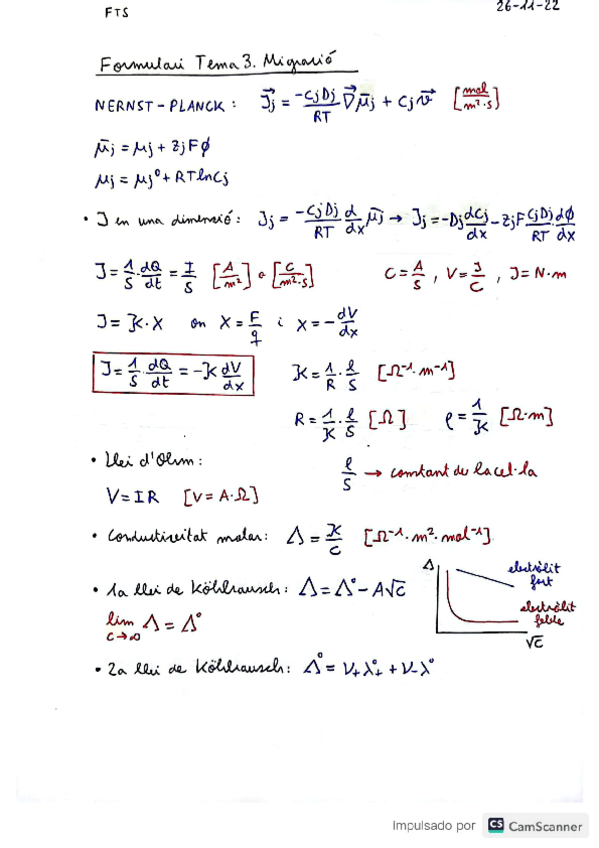 FTS 26-11-22
Formulari Tema 3. Migració
NERNST-PLANCK: J⃗j = -CjDj/RT ∇⃗μ̄j + Cj v⃗ [mol/m²·s]
μ̄j = μj + zjFϕ
μj = μj⁰ + RT ln Cj
• J en una dimensió: Jj = -CjDj/RT d/dx μ̄j → Jj = -Dj dCj/dx - zjF CjDj/RT dϕ/dx
J = 1/S · dQ/dt = I/S [A/m²] o [C/m²·s] C = A/S , V = J/C , J = N·m
J = K·X on X = F/q i X = -dV/dx
J = 1/S · dQ/dt = -K dV/dx K = 1/R · l/S [Ω⁻¹·m⁻¹]
R = 1/K · l/S [Ω] ρ = 1/K [Ω·m]
• Llei d'Ohm: l/S → constant de la cel·la
V = IR [V = A·Ω]
• Conductivitat molar: Λ = K/C [Ω⁻¹·m²·mol⁻¹]
• 1a llei de Köhlrausch: Λ = Λ° - A√C
lim Λ = Λ°
C→0
Λ
electròlit
fort
electròlit
feble
√C
• 2a llei de Köhlrausch: Λ° = ν₊λ°₊ + ν₋λ°
Impulsado por CS CamScanner